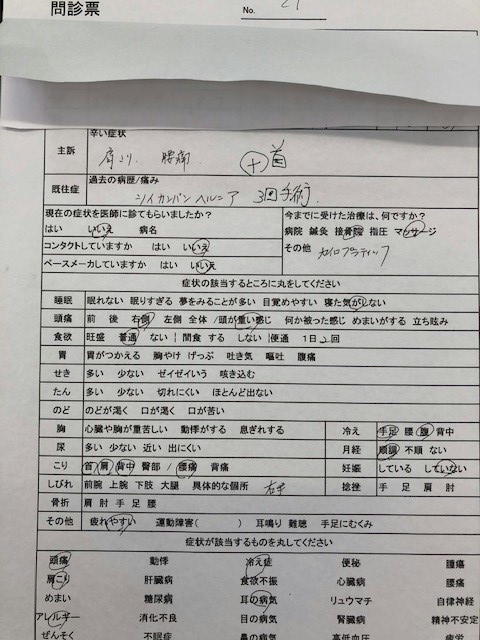 問診票
No. 21
辛い症状
主訴 肩こり 腰痛 十首
過去の病歴/痛み
既往症 ツイカンバンヘルニア 3回手術
現在の症状を医師に診てもらいましたか? 今までに受けた治療は、何ですか?
はい いいえ 病名 病院 鍼灸 接骨院 指圧 マッサージ
コンタクトしていますか はい いいえ その他 カイロプラティック
ペースメカしていますか はい いいえ
症状の該当するところに丸をしてください
睡眠 眠れない 眠りすぎる 夢をみることが多い 目覚めやすい 寝た気がしない
頭痛 前 後 右側 左側 全体 /頭が重い感じ 何か被った感じ めまいがする 立ち眩み
食欲 旺盛 普通 ない 間食 する しない 便通 1日2回
胃 胃がつかえる 胸やけ げっぷ 吐き気 嘔吐 腹痛
せき 多い 少ない ゼイゼイいう 咳き込む
たん 多い 少ない 切れにくい ほとんど出ない
のど のどが渇く 口が渇く 口が苦い
胸 心臓や胸が重苦しい 動悸がする 息ぎれする 冷え 手足 腰 腹 背中
尿 多い 少ない 近い 出にくい 月経 順調 不順 ない
こり 首 肩 背中 臀部 / 腰痛 背痛 妊娠 している していない
しびれ 前腕 上腕 下肢 大腿 具体的な個所 右手 捻挫 手 足 肩 肘
骨折 肩 肘 手 足 腰
その他 疲れやすい 運動障害( ) 耳鳴り 難聴 手足にむくみ
症状が該当するものを丸してください
頭痛 動悸 冷え症 便秘 腰痛
肩こり 肝臓病 食欲不振 心臓病 疲労
めまい 糖尿病 耳の病気 リュウマチ 自律神経
アレルギー 消化不良 目の病気 腎臓病 精神不安定
ぜんそく 不眠症 鼻の病気 高低血圧